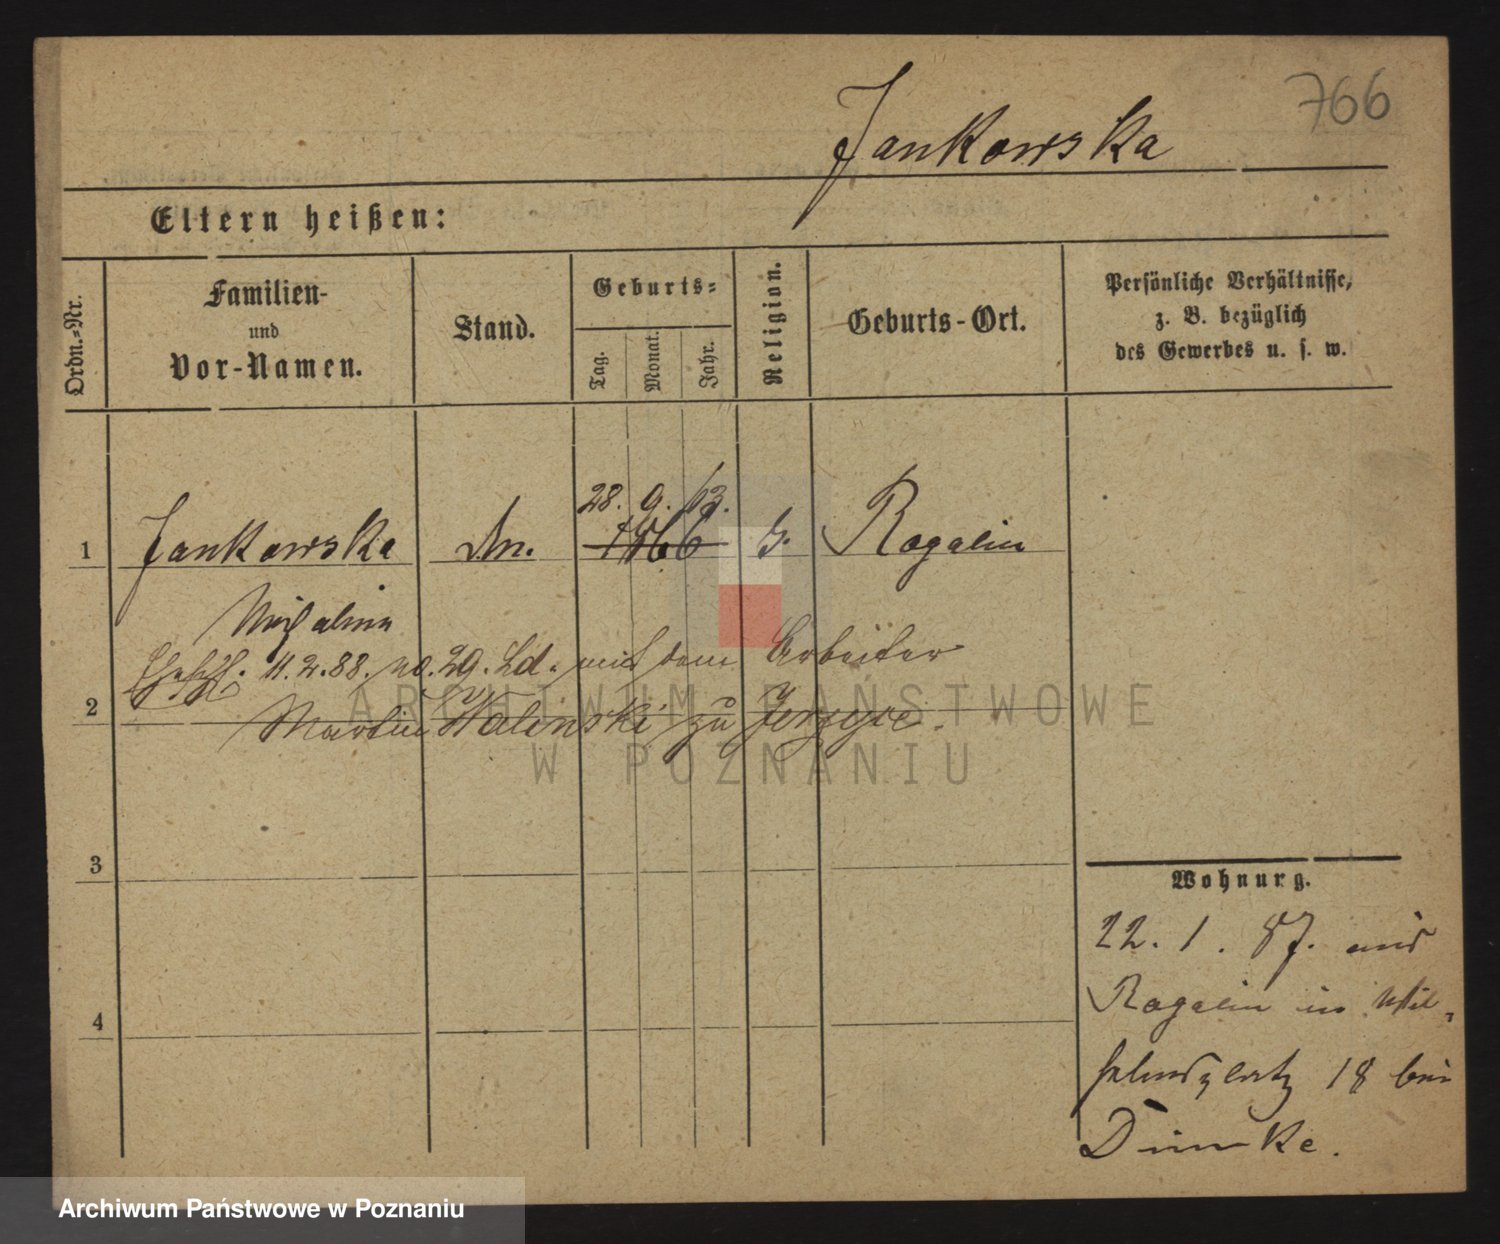 766
Jankowska
Eltern heißen:
Ordn.-Nr.
Familien-
und
Vor-Namen.
Stand.
Geburts-
Tag.
Monat.
Jahr.
Religion.
Geburts-Ort.
Persönliche Verhältnisse,
z. B. bezüglich
des Gewerbes u. s. w.
28. 9. 63.
1 Jankowska Dn. 1866 k. Rogalin
Michalina
Ehesch. 11.2.88. no. 29. Ld. mit dem Arbeiter
2 Martin Walinski zu Jerzyce.
ARCHIWUM PAŃSTWOWE
W POZNANIU
3
4
Wohnung.
22. 1. 87. aus
Rogalin in Wil-
helmsplatz 18 bei
Dumke.
Archiwum Państwowe w Poznaniu